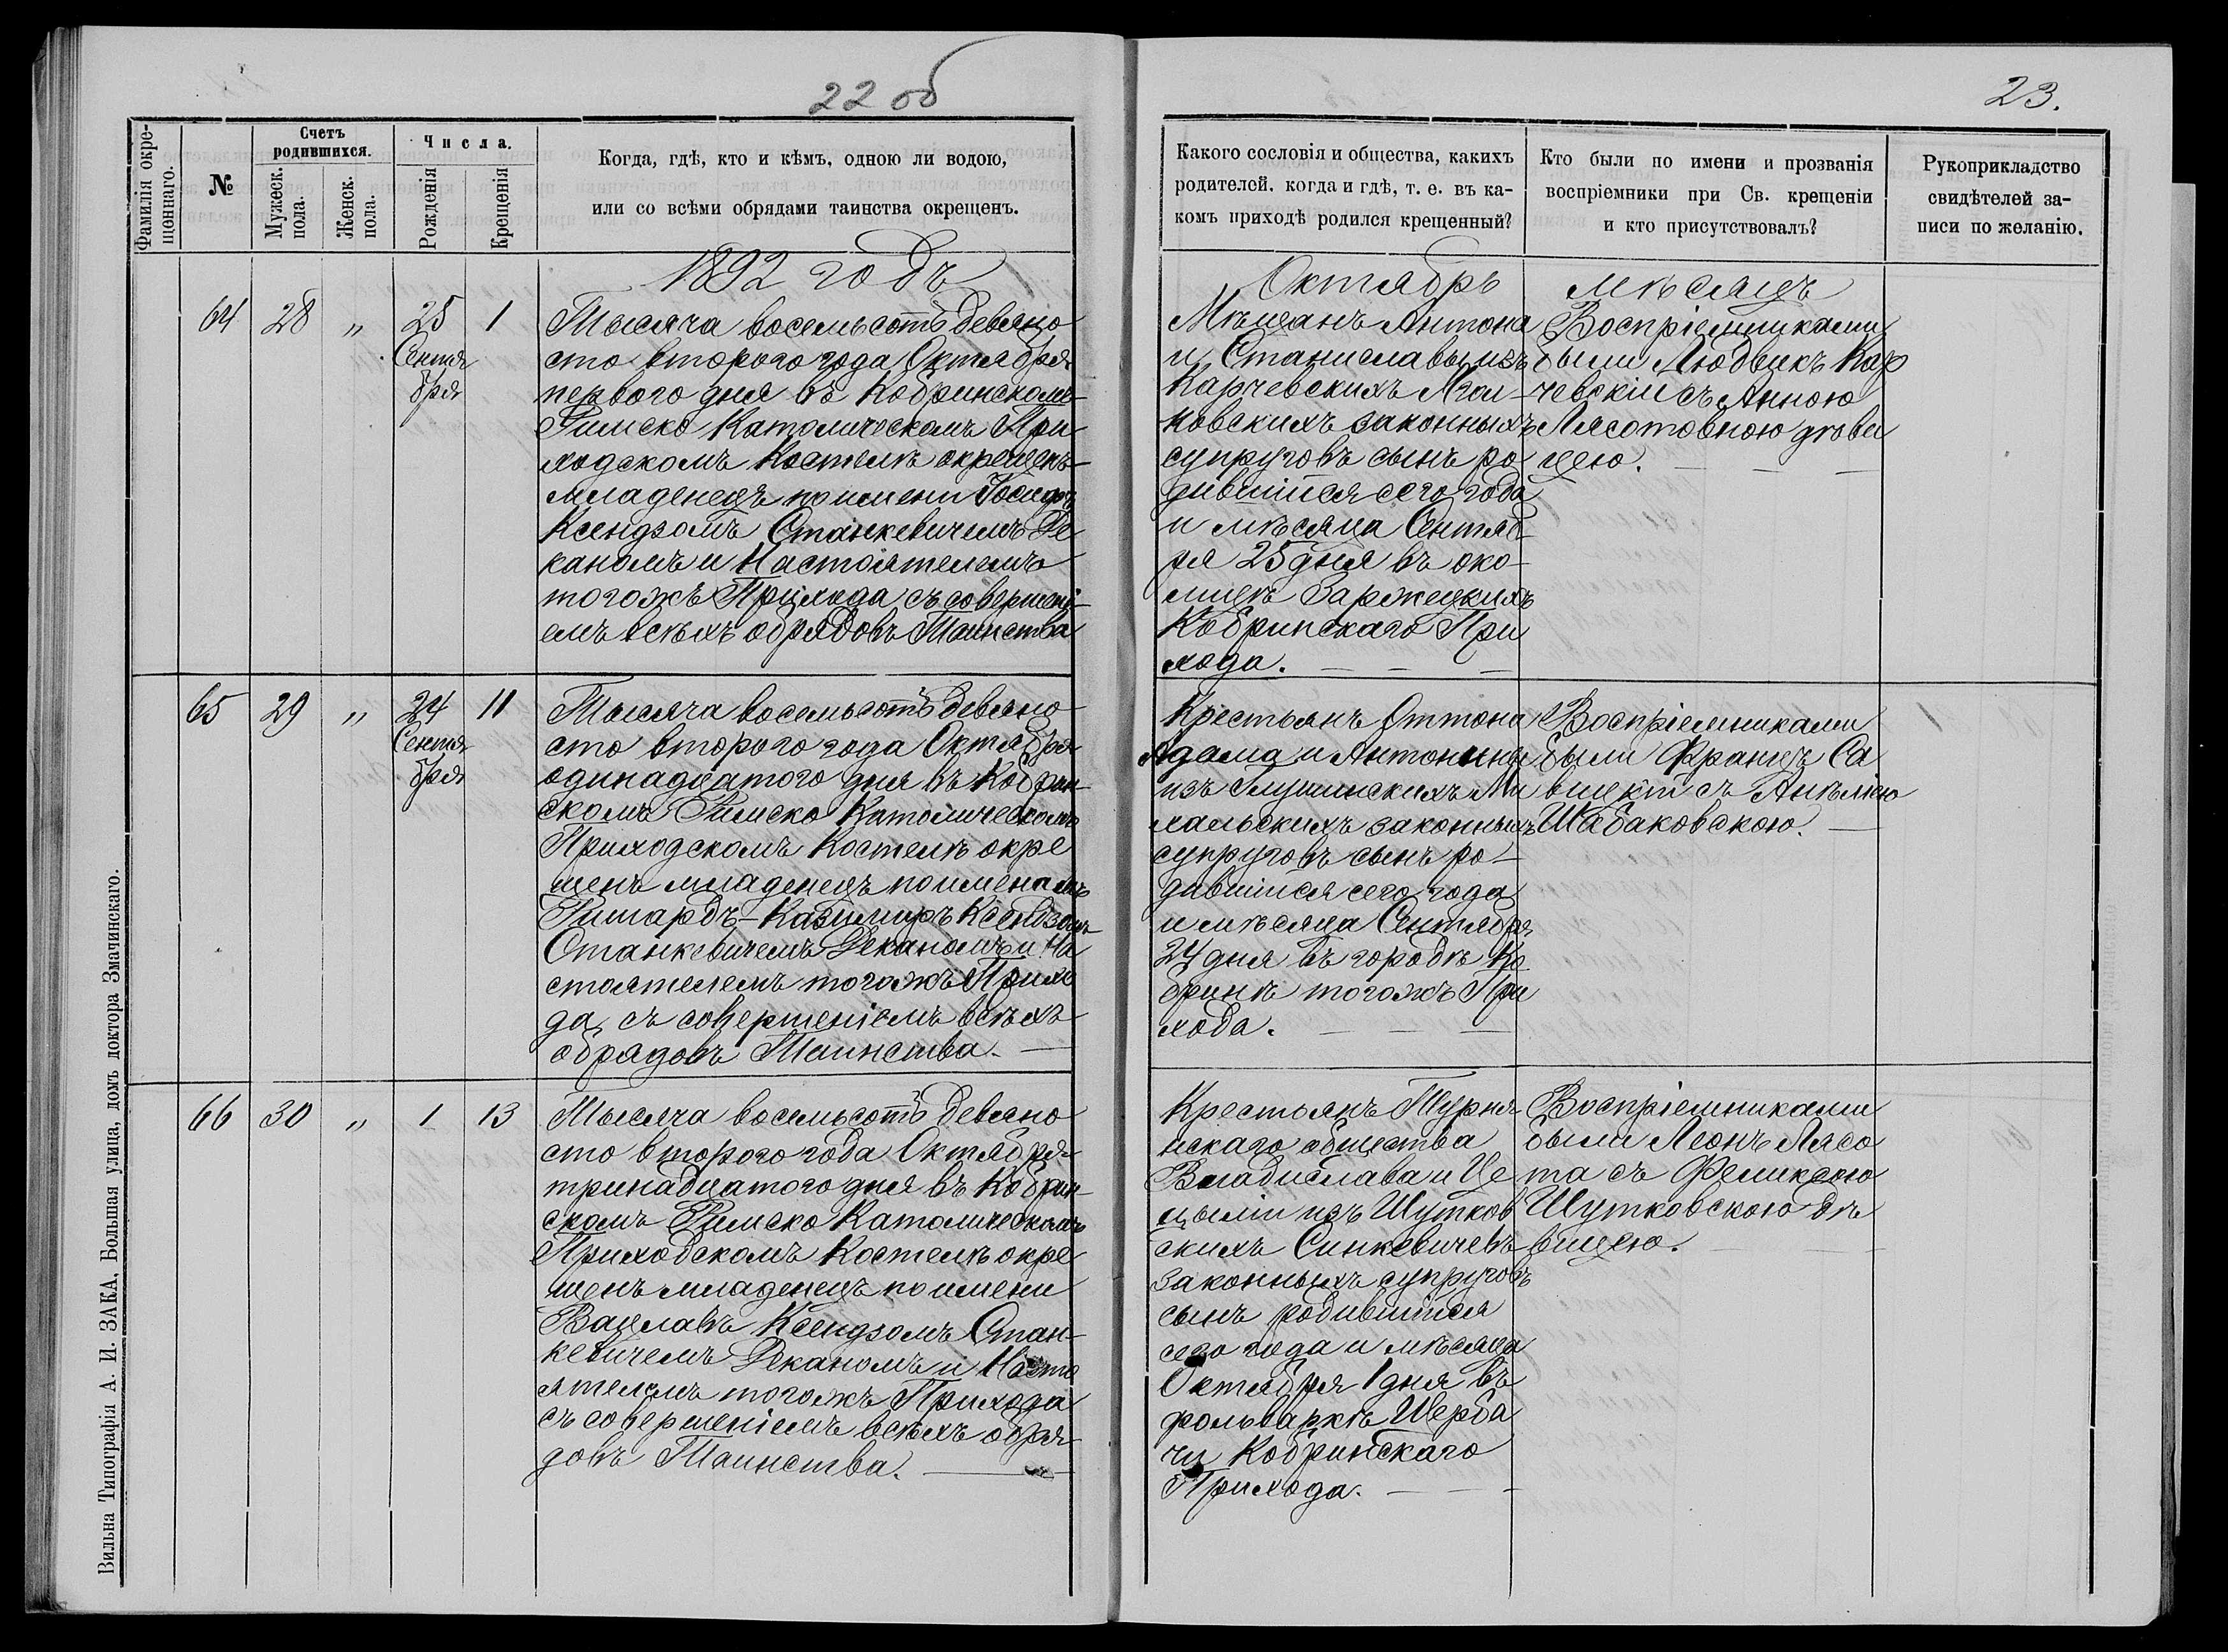 22 об
23.
Фамилія окре-
щеннаго.
№
Счетъ
родившихся.
Мужеск.
пола.
Женск.
пола.
Числа.
Рожденія
Крещенія
Когда, гдѣ, кто и кѣмъ, одною ли водою,
или со всѣми обрядами таинства окрещенъ.
Какого сословія и общества, какихъ
родителей, когда и гдѣ, т. е. въ ка-
комъ приходѣ родился крещенный?
Кто были по имени и прозванія
воспріемники при Св. крещеніи
и кто присутствовалъ?
Рукоприкладство
свидѣтелей за-
писи по желанію.
1892 годъ
Октябрь мѣсяцъ
64 28 " 25 1
Сентя
бря
Тысяча восемьсотъ девяно
сто второго года Октября
первого дня въ Кобринскомъ
Римско Католическомъ При
ходскомъ Костелѣ окрещенъ
младенецъ по имени Іосифъ
Ксендзомъ Станкевичемъ Де
каномъ и Настоятелемъ
тогожъ Прихода съ совершені-
емъ всѣхъ обрядовъ Таинства
Мѣщанъ Антона
и Станиславы изъ
Карчевскихъ
ковскихъ законныхъ
супруговъ сынъ ро
дившійся сего года
и мѣсяца Сентяб-
ря 25 дня въ око-
лицѣ Заржецкихъ
Кобринскаго При
хода.
Воспріемниками
были Людвикъ Кар
чевскій съ Анною
Лясотовною дѣви
цею.
65 29 " 24 11
Сентя
бря
Тысяча восемьсотъ девяно
сто второго года Октября
одинадцатого дня въ Кобрин-
скомъ Римско Католическомъ
Приходскомъ Костелѣ окре
щенъ младенецъ по именамъ
Ришардъ-Казимиръ Ксендзомъ
Станкевичемъ Деканомъ и На
стоятелемъ тогожъ Прихо
да, съ совершеніемъ всѣхъ
обрядовъ Таинства.
Крестьянъ Оттона
Адама и Антонины
изъ Глушинскихъ Ми
хальскихъ законныхъ
супруговъ сынъ ро-
дившійся сего года
и мѣсяца Сентября
24 дня въ городѣ Ко
бринѣ тогожъ При
хода.
Воспріемниками
были Францъ Са
вицкій съ Анѣлію
Шабаковскою.
66 30 " 1 13
Тысяча восемьсотъ девяно
сто второго года Октября
тринадцатого дня въ Кобрин-
скомъ Римско Католическомъ
Приходскомъ Костелѣ окре
щенъ младенецъ по имени
Вацлавъ Ксендзомъ Стан-
кевичемъ Деканомъ и Насто
ятелемъ тогожъ Прихода
съ совершеніемъ всѣхъ обря-
довъ Таинства.
Крестьянъ Турня-
нскаго общества
Владислава и Це
цыліи изъ Шутков
скихъ Синкевичевъ
законныхъ супруговъ
сынъ родившійся
сего года и мѣсяца
Октября 1 дня въ
фольваркѣ Щерба
чи Кобринскаго
Прихода.
Воспріемниками
были Леонъ Лясо
та съ Феликсою
Шутковскою дѣ
вицею.
Вильна Типографія А. И. ЗАКА, Большая улица, домъ доктора Змачинскаго.